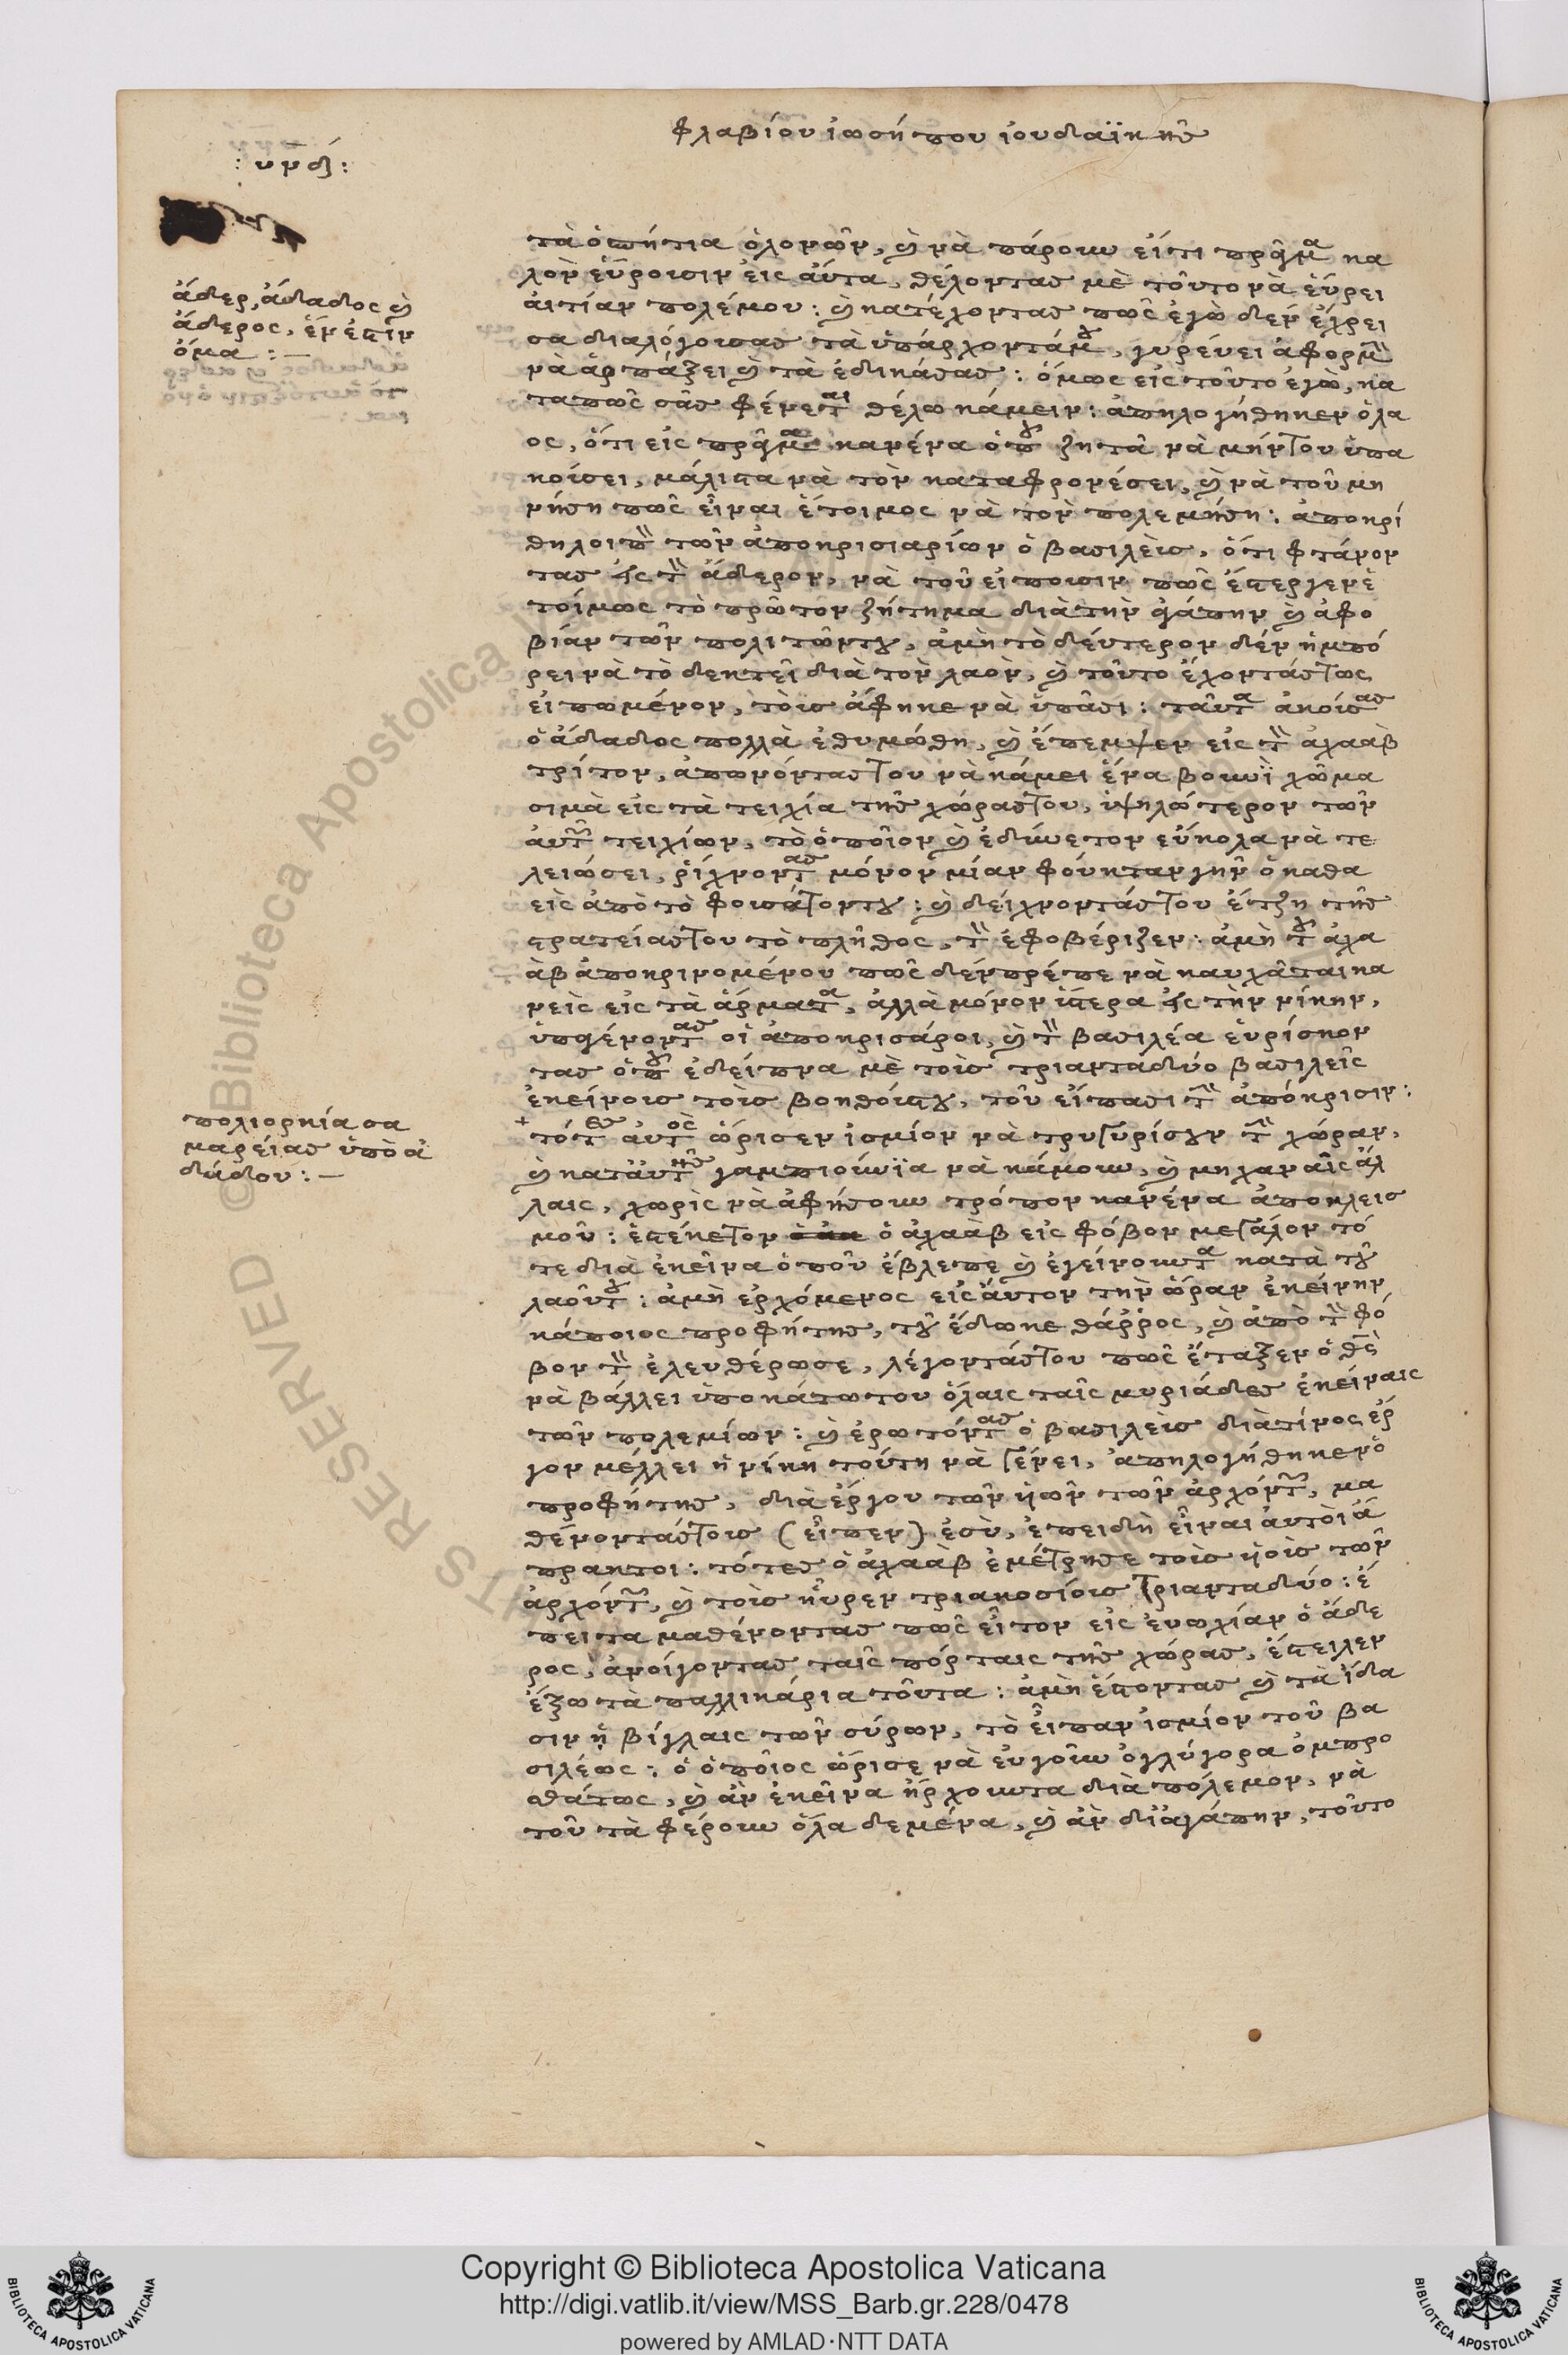 φλαβίου ἰωσήπου ἰουδαϊκῆσ
: υνδ :
ἄδερ, ἄδαδος κ
ἄδερος, ἕν ἐστιν
ὄμα : —
τὰ ὁσπήτια ὁλονῶν, κ νὰ πάρουν εἴτι πρᾶγμα κα
λὸν εὕρουσιν εἰς αὐτα, θέλοντασ μὲ τοῦτο νὰ εὕρει
αἰτίαν πολέμου : κ κατέχοντασ πῶς ἐγὼ δεν ἔχρει
σα διαλόγουσασ τὰ ὑπάρχοντάμου, γυρεύει ἀφορμὴν
νὰ ἁρπάξει κ τὰ ἐδικάσασ : ὅμως εἰς τοῦτο ἐγὼ, κα
ταπῶς σᾶσ φένεται θέλω κάμειν : ἀπηλογήθηκεν ὁλα
ος, ὅτι εἰς πρᾶγμα κανένα ὁποῦ ζητᾶ νὰ μήντου ὑπα
κούσει, μάλιστα νὰ τὸν καταφρονέσει, κ νὰ τοῦ μη
νήση πῶς εἶναι ἕτοιμος νὰ τὸν πολεμήση : ἀποκρί
θηλοιπὸν τῶν ἀποκρισιαρίων ὁ βασιλεὺσ, ὅτι φτάνον
τασ εἰς τὸν ἄδερον, νὰ τοῦ εἰποῦσιν πῶς ἔστεργενὲ
τοίμως τὸ πρῶτον ζήτημα διὰ τὴν ἀγάπην κ ἀφο
βίαν τῶν πολιτῶντου, ἀμὴ τὸ δεύτερον δὲν ἠμπό
ρει νὰ τὸ δεκτεῖ διὰ τὸν λαὸν, κ τοῦτο ἔχοντάστως
εἰπωμένον, τοὺσ ἄφηκε νὰ ὑπᾶσι : ταῦτα ἀκούσασ
ὁ ἄδαδος πολλὰ ἐθυμώθη, κ ἔπεμψεν εἰς τὸν ἀχαὰβ
τρίτον, ἀπωνόντασ του νὰ κάμει ἕνα βουνὶ χῶμα
σιμὰ εἰς τὰ τειχία τῆσ χώραστου, ὑψηλώτερον τῶν
αὐτῶν τειχίων, τὸ ὁποῖον κ ἐδύνετον εὔκολα νὰ τε
λειώσει, ῥίχνοντασ μόνον μίαν φούκταν γῆν ὁ καθα
εὶς ἀπὸ τὸ φουσάτοντου : κ δείχνοντάστου ἔτζη τῆσ
στρατείαστου τὸ πλῆθος, τὸν ἐφοβέριζεν : ἀμὴ τοῦ ἀχα
ὰβ ἀποκρινομένου πῶς δὲνπρέπε νὰ καυχᾶται κα
νεὶς εἰς τὰ ἄρματα, ἀλλὰ μόνον ὕστερα εἰς τὴν νίκην,
ὑπᾳένοντασ οἱ ἀποκρισάροι, κ τὸν βασιλέα εὑρίσκον
τασ ὁποῦ ἐδείπνα μὲ τοὺσ τριανταδύο βασιλεῖς
ἐκείνουσ τοὺσ βοηθούστου, τοῦ εἴπασι τὴν ἀπόκρισιν :
πολιορκία σα
μαρείασ ὑπὸ ἀ
δάδου : —
+ τότεσ αὐτὸς ὥρισεν ἰσμίον νὰ τρυγυρίσουν τὴν χώραν,
κ κατ᾽αὐτῆσ χαμπιούνϊα νὰ κάμουν, κ μηχαναῖς ἄλ
λαις, χωρὶς νὰ ἀφήσουν τρόπον κανένα ἀποκλεισ
μοῦ : ἐστέκετον ὁ ἀχαὰβ εἰς φόβον μεγάλον τό
τε διὰ ἐκεῖνα ὁποῦ ἔβλεπε κ ἐγείνουντα κατὰ τοῦ
λαοῦντου : ἀμὴ ἐρχόμενος εἰς αὐτον τὴν ὥραν ἐκείνην
κάποιος προφήτησ, τοῦ ἔδωκε θάῤῥος, κ ἀπὸ τὸν φό
βον τὸν ἐλευθέρωσε, λέγοντάστου πῶς ἔταξεν ὁ θεὸς
νὰ βάλλει ὑποκάτωτου ὅλαις ταῖς μυριάδεσ ἐκείναις
τῶν πολεμίων : κ ἐρωτόντασ ὁ βασιλεὺσ διὰ τίνος ἔρ
γον μέλλει ἡ νίκη τούτη νὰ γένει, ἀπηλογήθηκεν ὁ
προφήτησ, διὰ ἔργου τῶν ὑιῶν τῶν ἀρχόντων, μα
θένοντάστουσ (εἶπεν) ἐσὺ, ἐπειδὴ εἶναι αὐτοὶ ἄ
πρακτοι : τότεσ ὁ ἀχαὰβ ἐμέτρησε τοὺσ ὑιοὺσ τῶν
ἀρχόντων, κ τοὺσ ηὗρεν τριακοσίουσ τριανταδύο : ἔ
πειτα μαθένοντασ πῶς εἶτον εἰς εὐωχίαν ὁ ἄδε
ρος, ἀνοίγοντασ ταῖς πόρταις τῆσ χώρασ, ἔστειλεν
ἔξω τὰ παλλικάρια τοῦτα : ἀμὴ ἔστοντασ κ τὰ ἴδα
σιν ᾑ βίγλαις τῶν σύρων, τὸ εἶπαν ἰσμίον τοῦ βα
σιλέως : ὁ ὁποῖος ὥρισε νὰ εὐγοῦν ὀγλύγορα ὀμπρο
σθάτως, κ ἂν ἐκεῖνα ἤρχουντα διὰ πόλεμον, νὰ
τοῦ τὰ φέρουν ὅλα δεμένα, κ ἂν δι᾽ἀγάπην, τοῦτο
© Biblioteca Apostolica Vaticana
RESERVED
Copyright © Biblioteca Apostolica Vaticana
http://digi.vatlib.it/view/MSS_Barb.gr.228/0478
powered by AMLAD·NTT DATA
BIBLIOTECA APOSTOLICA VATICANA
BIBLIOTECA APOSTOLICA VATICANA